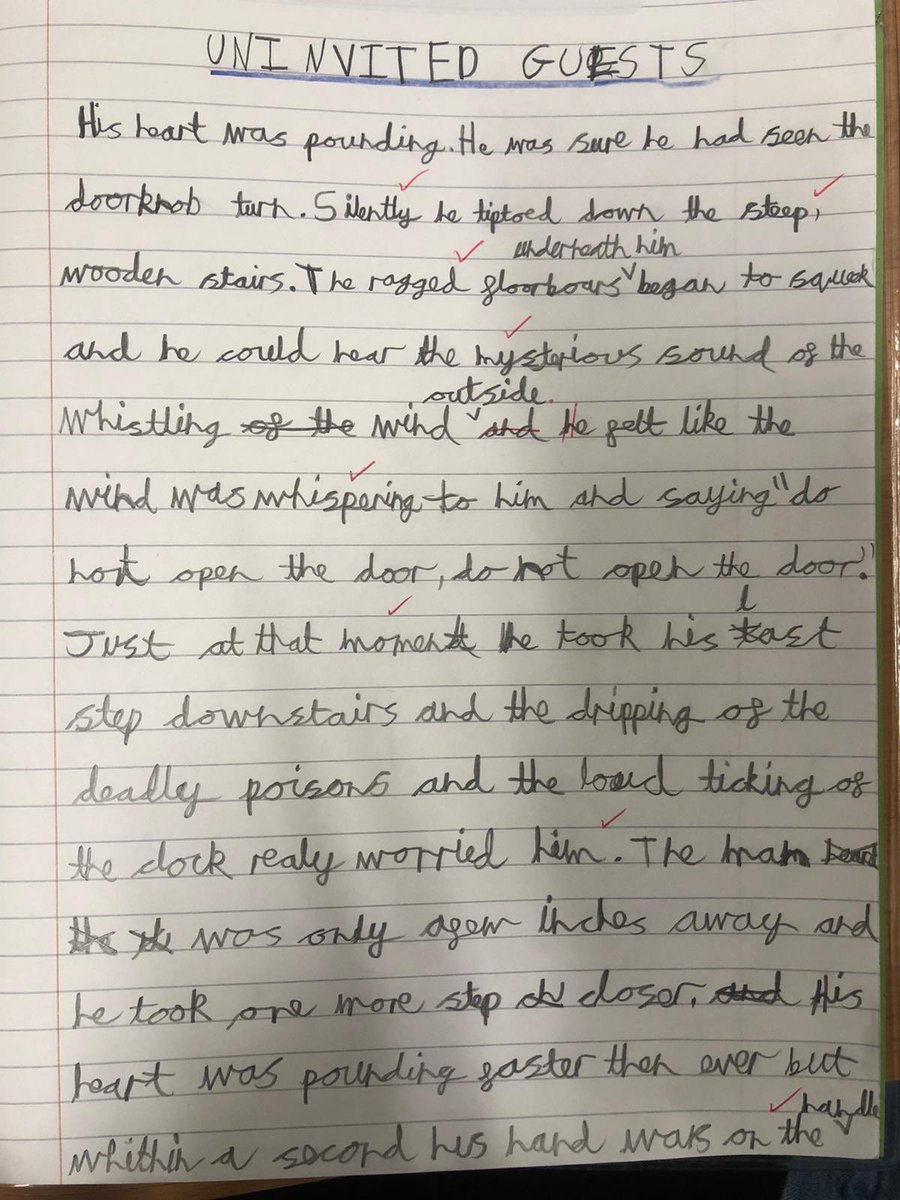 UNINVITED GUESTS
His heart was pounding. He was sure he had seen the
doorknob turn. Silently he tiptoed down the steep,
underneath him
wooden stairs. The ragged floorboars began to squeek
and he could hear the mysterious sound of the
outside.
whistling of the wind and He felt like the
wind was whispering to him and saying "do
not open the door, do not open the door."
l
Just at that moment he took his tast
step downstairs and the dripping of the
deadly poisons and the loud ticking of
the clock realy worried him. The man heard
the was only afew inches away and
he took one more step closer. and His
heart was pounding faster then ever but
handle
whithin a second his hand was on the